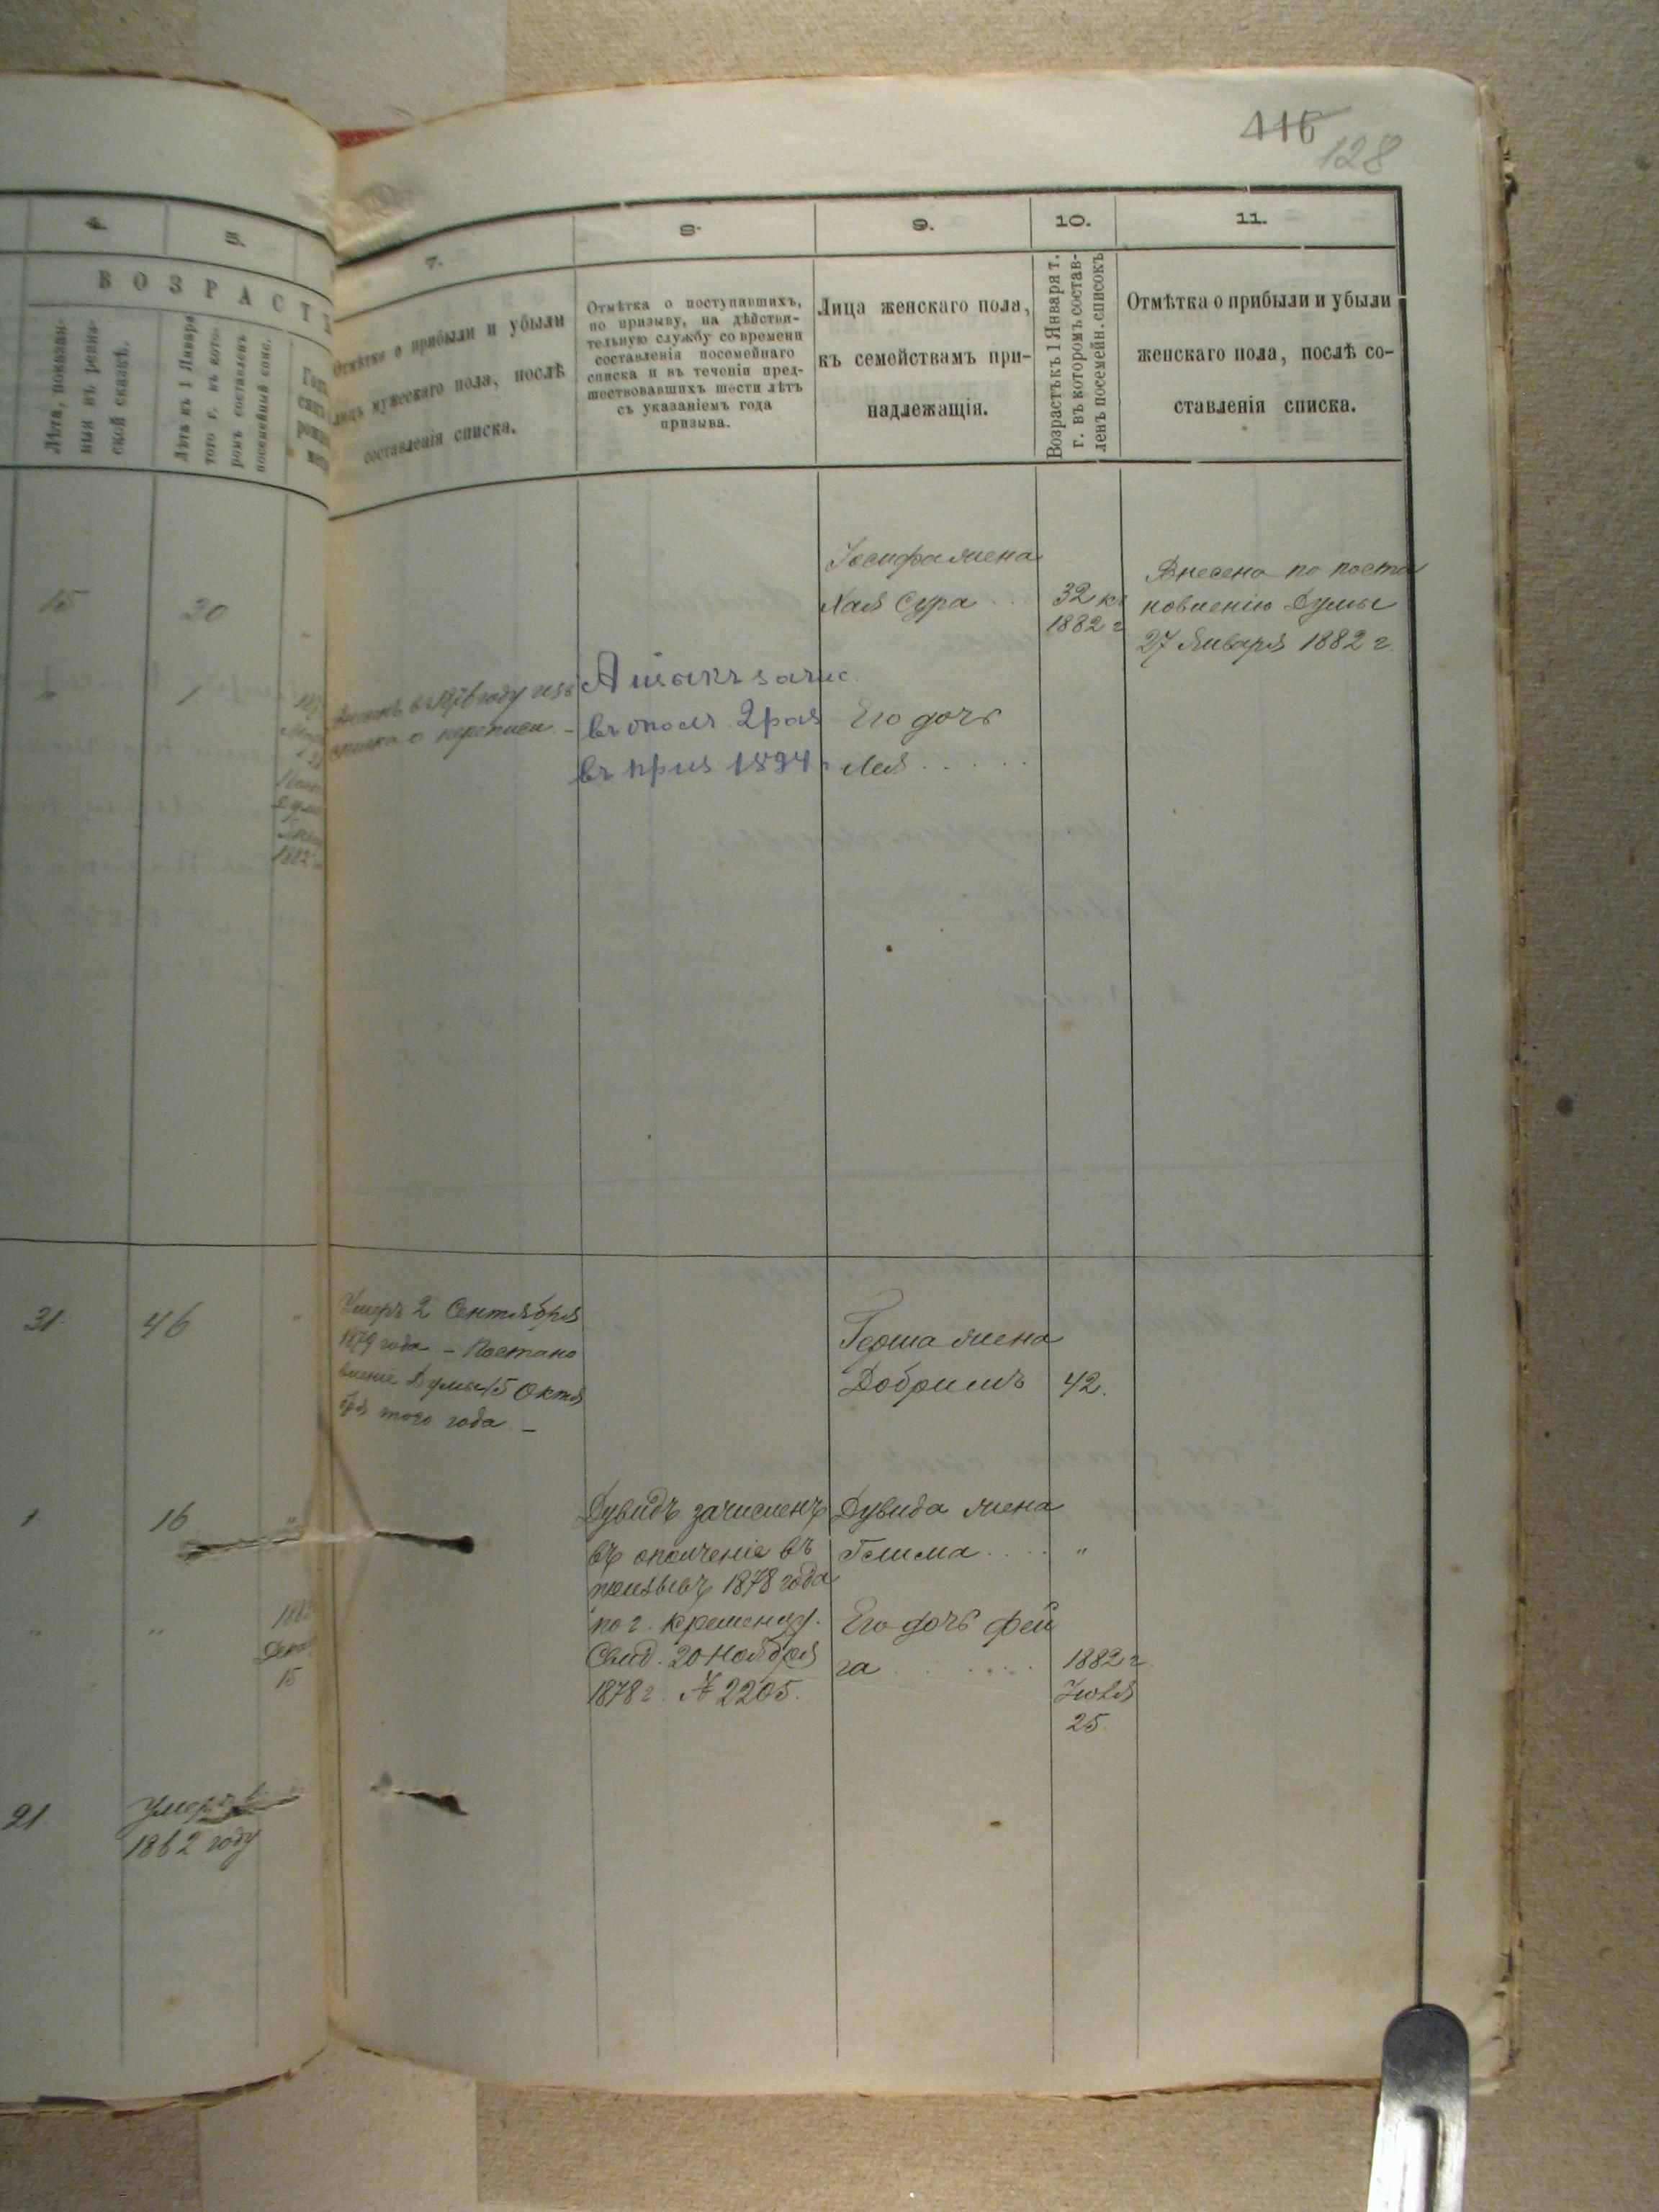 416
128
4.
5.
7.
8.
9.
10.
11.
ВОЗРАСТЪ
Лѣта, показан-
ныя въ ревиз-
ской сказкѣ.
Лѣта къ 1 Января
того г. въ кото-
ромъ составленъ
посемейный спис.
Отмѣтка о прибыли и убыли
лицъ мужескаго пола, послѣ
составленія списка.
Отмѣтка о поступившихъ,
по призыву, на дѣйстви-
тельную службу со времени
составленія посемейнаго
списка и въ теченіи пред-
шествовавшихъ шести лѣтъ
съ указаніемъ года
призыва.
Лица женскаго пола,
къ семействамъ при-
надлежащія.
Возрастъ къ 1 Января т.
г. въ которомъ состав-
ленъ посемейн. списокъ
Отмѣтка о прибыли и убыли
женскаго пола, послѣ со-
ставленія списка.
15
30
Іосифа жена
Хая Сура
32 къ
1882 г
Внесена по поста
новленію Думы
27 Января 1882 г.
1
въ 1876 году изъ
списка о переписи. –
зачис.
въ ополч. 2 раз
въ приз 1894 г
Его дочь
Лея
1882
31
46
Умеръ 2 Сентября
1879 года – Постано
вленіе Думы 15 Октя
бря того года. –
Герша жена
Добришъ
42.
1
16
Дувидъ зачисленъ
въ ополченіе въ
призывъ 1878 года
по г. Кременцу.
Свид. 20 Ноября
1878 г. № 2205.
Дувида жена
"
Его дочь Фей
га
1882 г
25.
"
"
15
21
Умеръ въ
1862 году